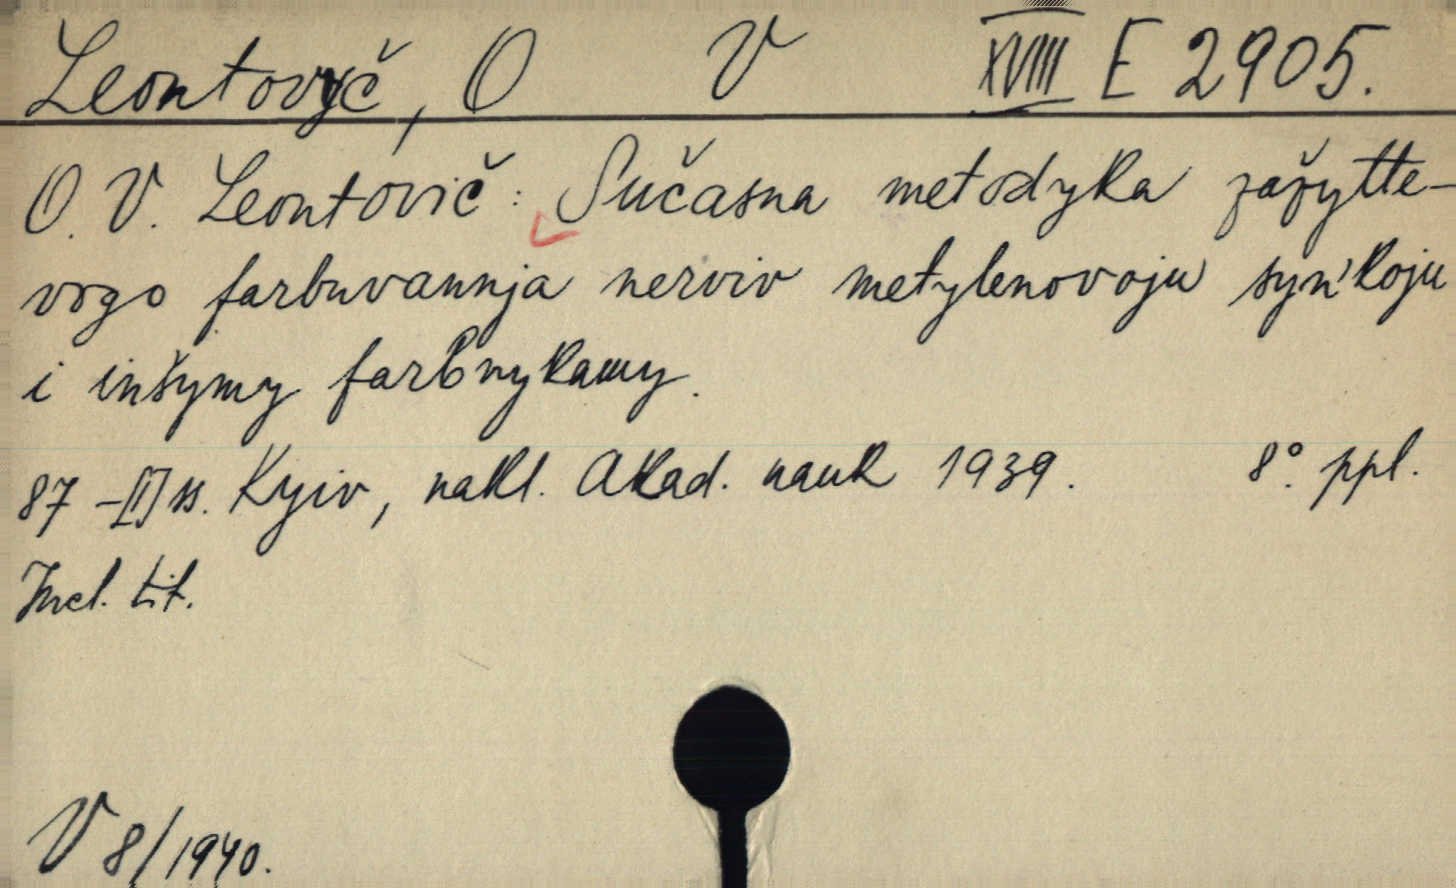 Leontovyč, O V XVIII E 2905.
O. V. Leontovič: Sučasna metodyka zažytte-
vogo farbuvannja nerviv metylenovoju syn'koju
i inšymy farbnykamy.
87 -[I] ss. Kyiv, nakl. Akad. nauk 1939. 8°. ppl.
Incl. tit.
V 8/1940.